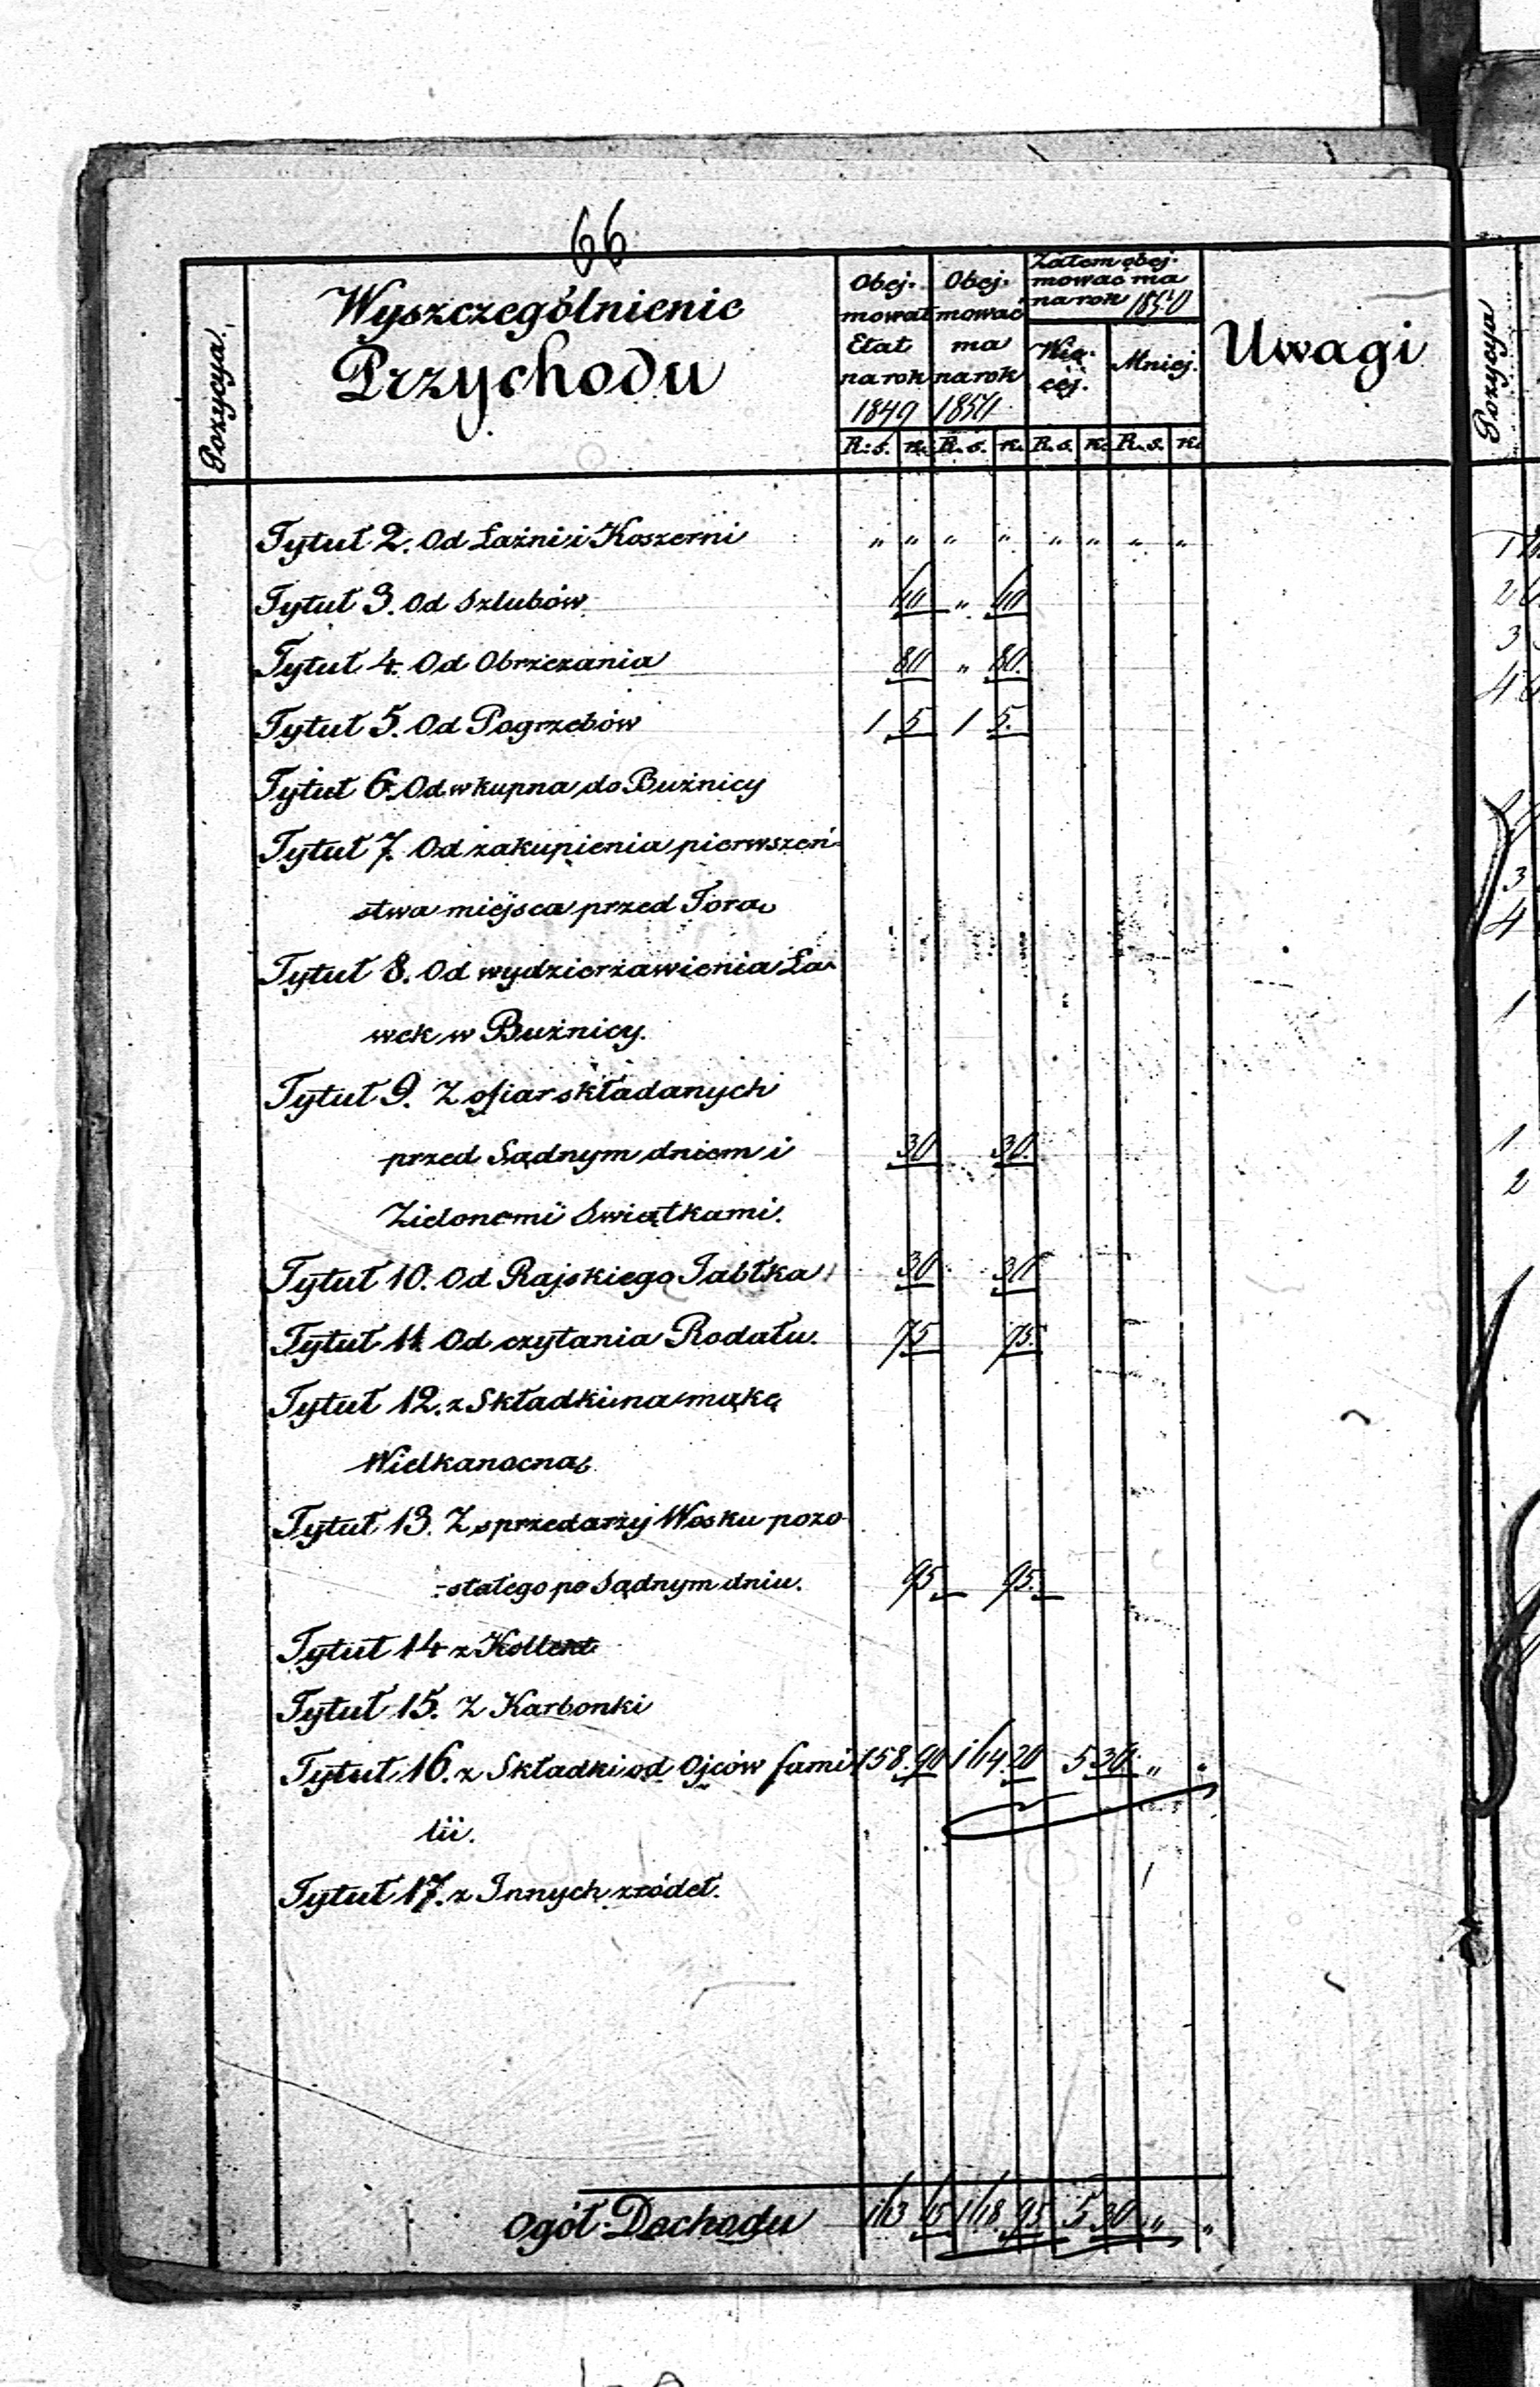 66
Pozycya.
Wyszczególnienie
Przychodu
Obej-
mował
Etat
na rok
1849
Obej-
mować
ma
na rok
1850
Zatem obej-
mować ma
na rok 1850
Wię-
cej.
Mniej.
Uwagi
R. s. k. R. s. k. R. s. k. R. s. k.
Tytuł 2. Od Łaźni i Koszerni „ „ „ „ „ „ „ „
Tytuł 3. Od Szlubów 60 „ 60
Tytuł 4. Od Obrzezania 80 „ 80.
Tytuł 5. Od Pogrzebów 1 5 1 5.
Tytuł 6. Od wkupna do Bużnicy
Tytuł 7. Od zakupienia pierwszeń-
stwa miejsca przed Torą
Tytuł 8. Od wydzierżawienia Ła-
wek w Bużnicy.
Tytuł 9. Z ofiar składanych
przed Sądnym dniem i 30 30.
Zielonemi Swiątkami.
Tytuł 10. Od Rajskiego Jabłka 30 30
Tytuł 11. Od czytania Rodału. 75 75.
Tytuł 12. z Składki na mąkę
Wielkanocną
Tytuł 13. Z sprzedarzy Wosku pozo-
-stałego po Sądnym dniu. 95 95.
Tytuł 14 z Kollekt
Tytuł 15. Z Karbonki
Tytuł 16. z Składki od Ojców fami- 158.90 164.20 5 30. „ „
lii.
Tytuł 17. z Innych zródeł.
Ogół Dochodu 163 65 168.95 5 30 „ „
Pozycya